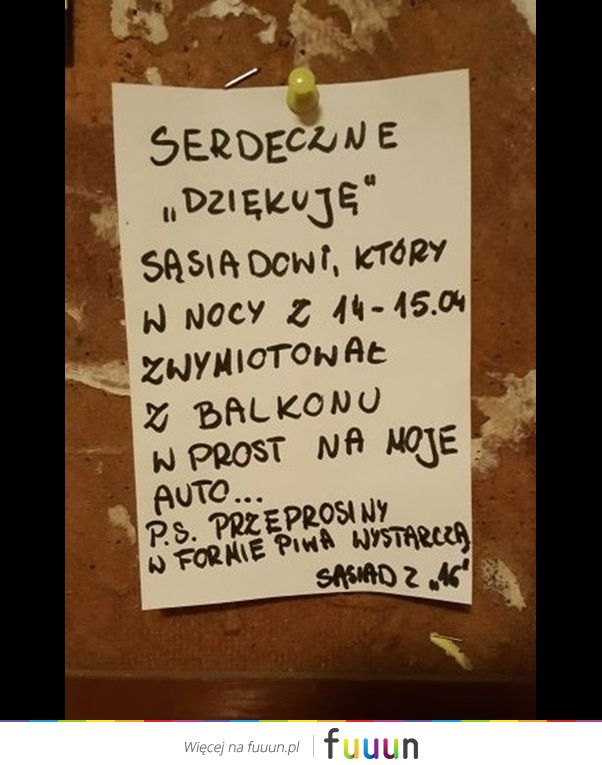 SERDECZNE
„DZIĘKUJĘ"
SĄSIADOWI, KTÓRY
W NOCY Z 14-15.04
ZWYMIOTOWAŁ
Z BALKONU
W PROST NA MOJE
AUTO...
P.S. PRZEPROSINY
W FORMIE PIWA WYSTARCZĄ
SĄSIAD Z „16"
Więcej na fuuun.pl
fuuun